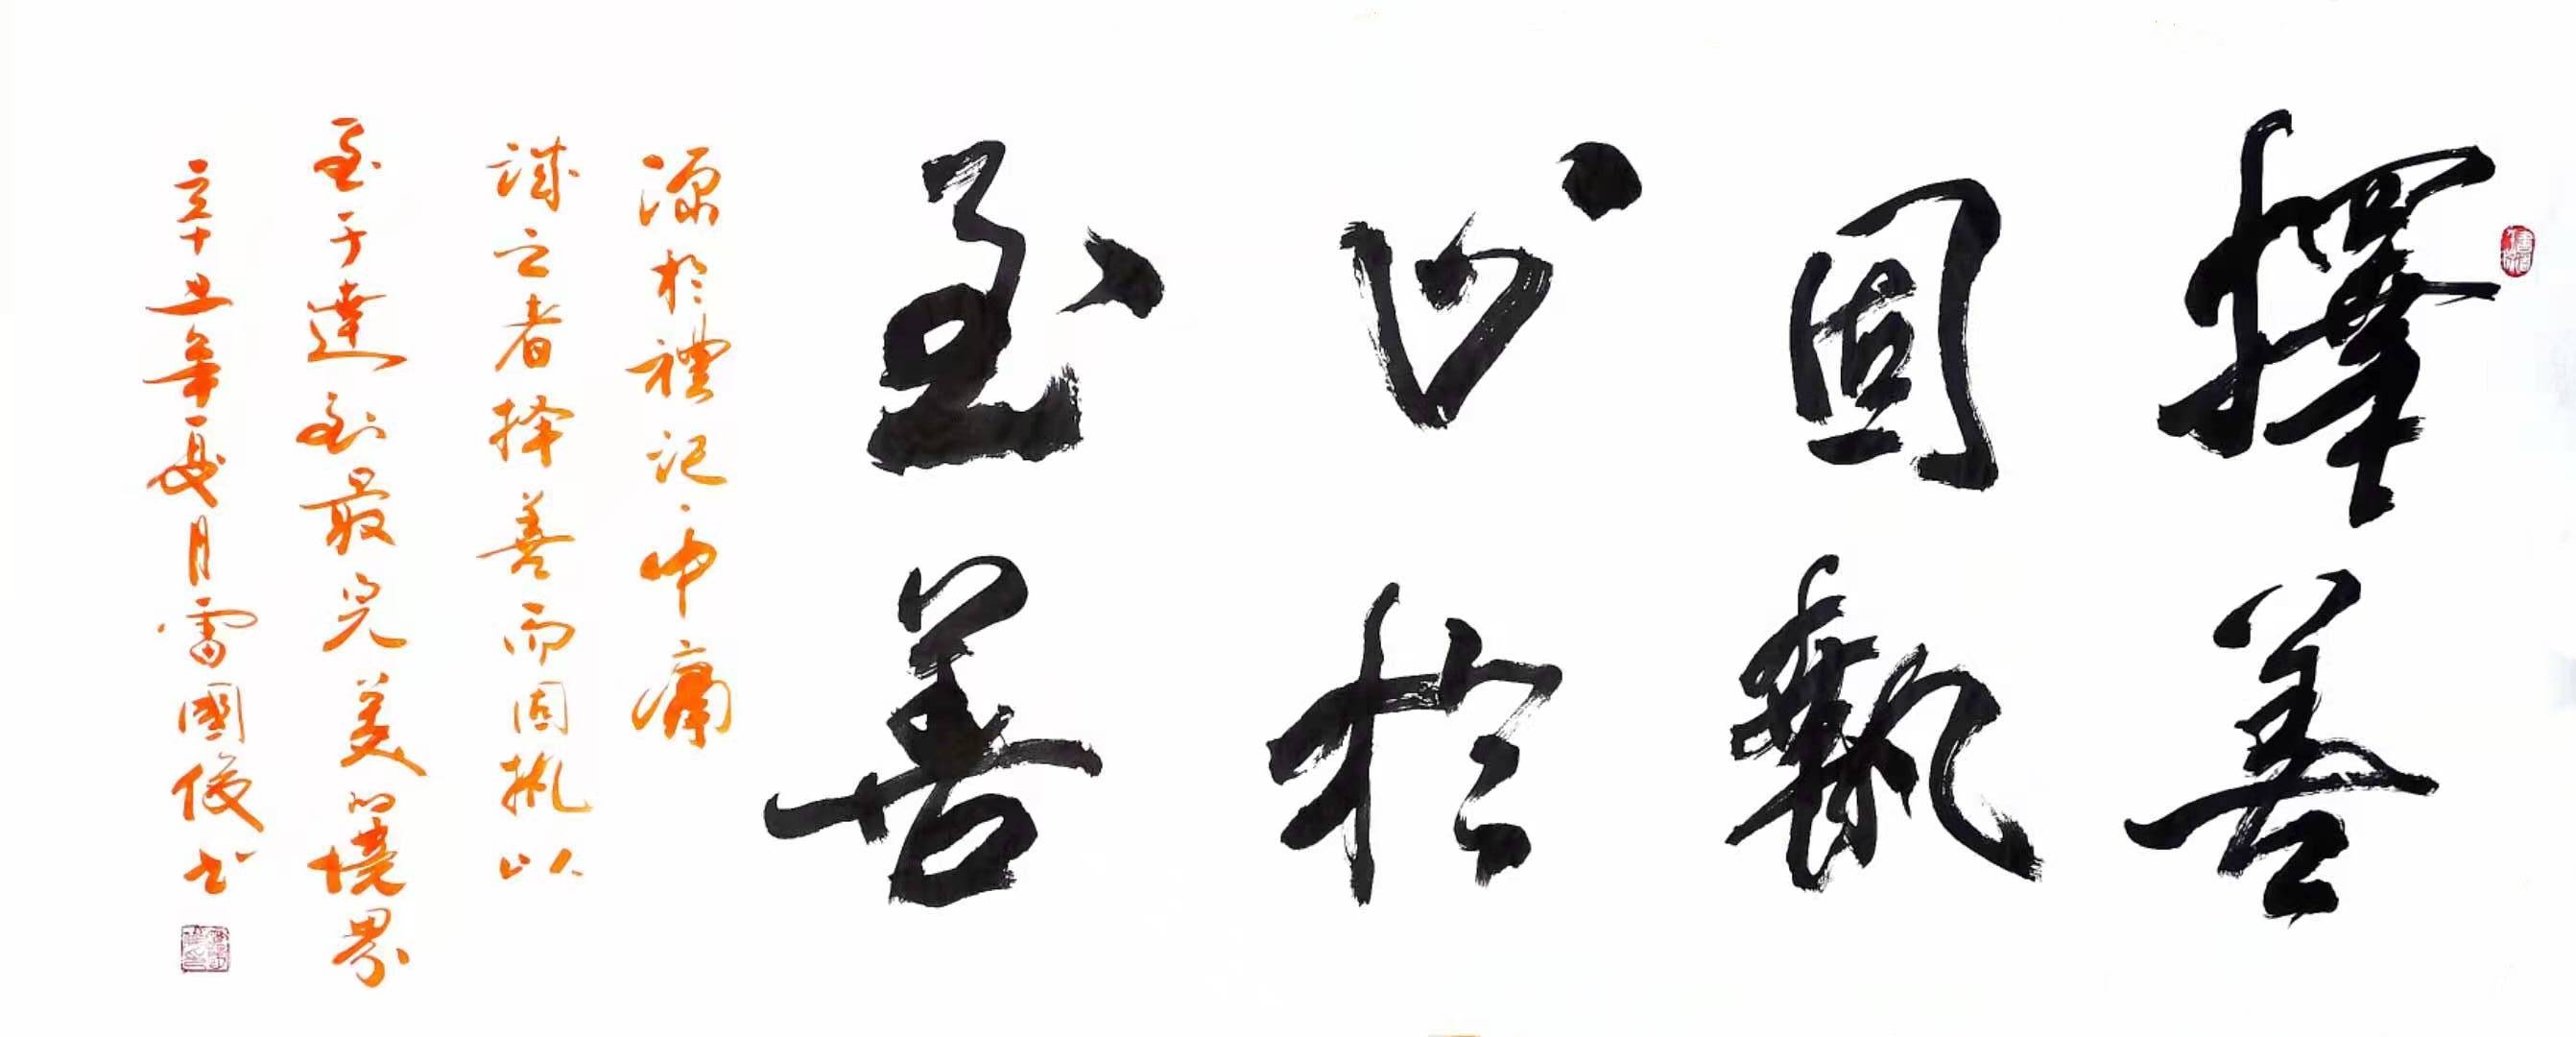 擇善
固執
止於
至善
源於禮记中庸
诚之者择善而固执以
至于達到最完美的境界
辛丑年夏月雷國俊书